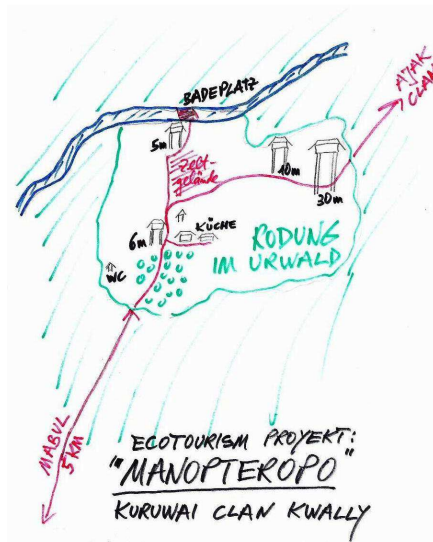 BADEPLATZ
AJAK
CLAN
5m
Zelt-
gelände
10m
30m
6m
KÜCHE
RODUNG
IM URWALD
WC
MABUL
5 KM
ECOTOURISM PROYEKT:
"MANOPTEROPO"
KURUWAI CLAN KWALLY